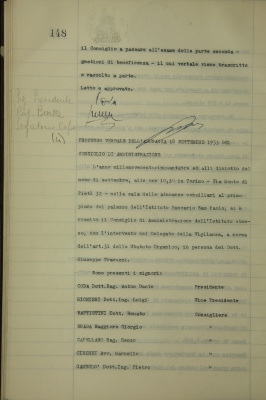 148
il Consiglio a passare all'esame della parte seconda -
gestioni di beneficenza - il cui verbale viene trascritto
e raccolto a parte.
Letto e approvato.
PROCESSO VERBALE DELL'ADUNANZA 18 SETTEMBRE 1953 DEL
CONSIGLIO DI AMMINISTRAZIONE
L'anno millenovecentocinquantatre addì diciotto del
mese di settembre, alle ore in Torino - Via Monte di
Pietà 32 - nella sala delle adunanze consiliari al primo
piano del palazzo dell'Istituto Bancario San Paolo, si è
riunito il Consiglio di Amministrazione dell'Istituto stes-
so, con l'intervento del Delegato della Vigilanza, a norma
dell'art. dello Statuto Organico, in persona del Dott.
Giuseppe
Sono presenti i signori:
CODA Dott.Rag. Anton Dante Presidente
Dott.Ing. Luigi Vice Presidente
BATTISTINI Dott. Renato Consigliere
Maggiore Giorgio "
CAPELLANO Rag. "
Avv. "
Dott.Ing. Pietro "